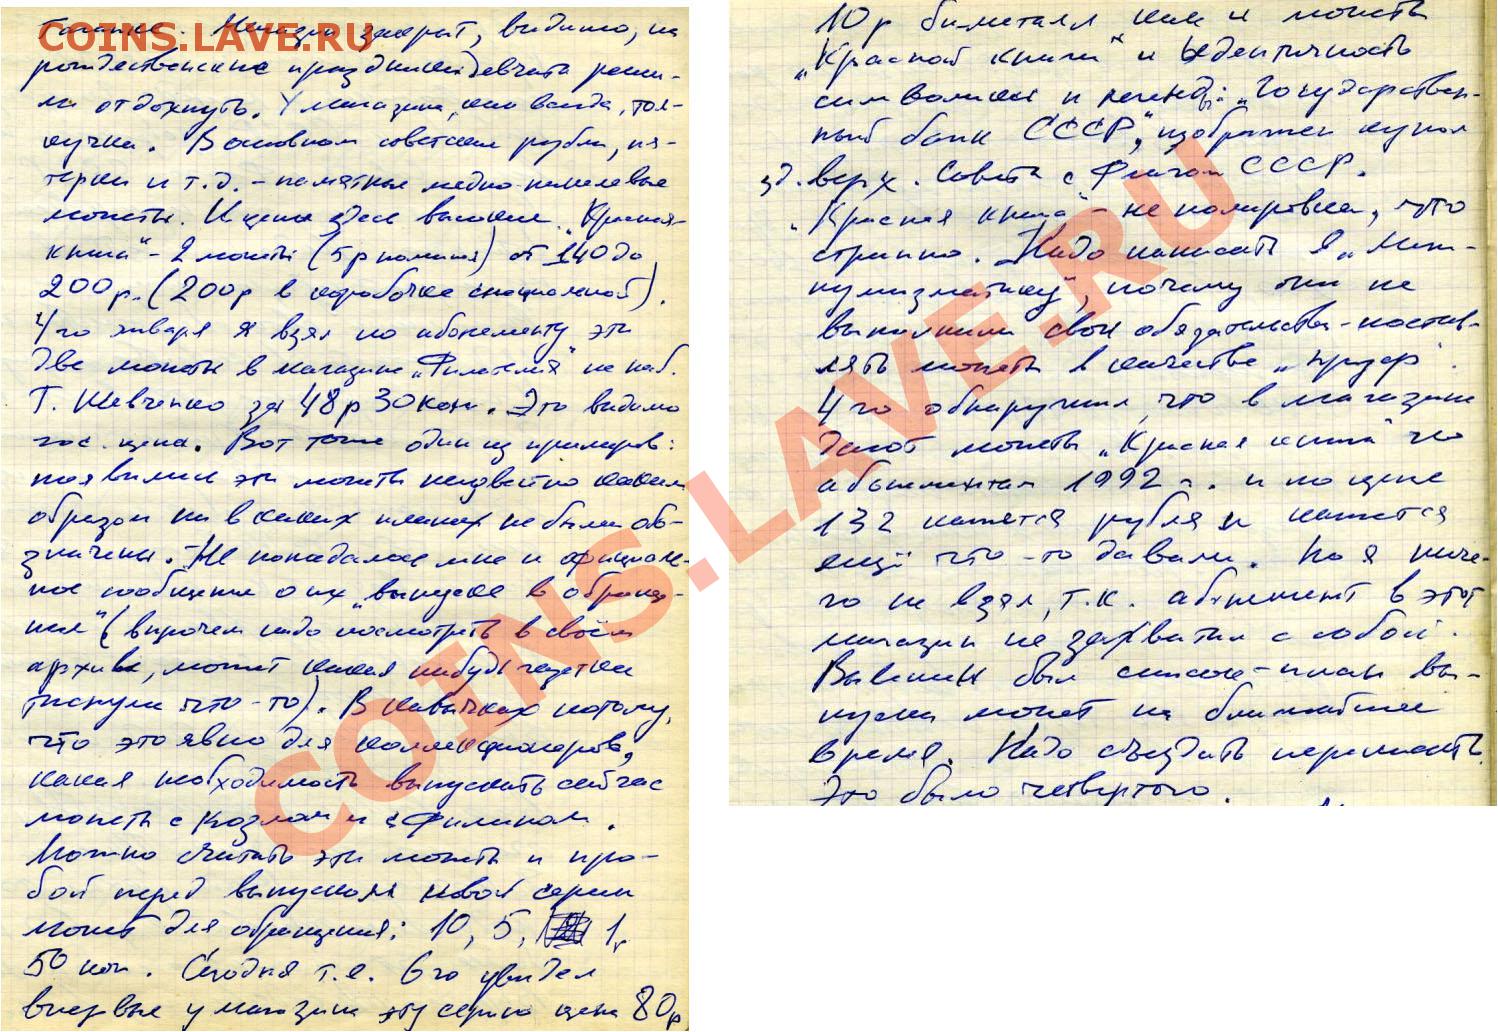 COINS.LAVE.RU
Таганке. Магазин закрыт, видимо, на
рождественские праздники девчата реши-
ли отдохнуть. У магазина, как всегда, тол-
кучка. В основном советские рубли, пя-
терки и т.д. - памятные медно-никелевые
монеты. И цены здесь высокие. „Красная
книга" - 2 монеты (5р номинал) от 140 до
200р. (200р в коробочке специальной).
4го января я взял по абонементу эти
две монеты в магазине „Филателия" на наб.
Т. Шевченко за 48р 30коп. Это видимо
гос. цена. Вот тоже один из примеров:
появились эти монеты неизвестно каким
образом ни в каких планах не были обо-
значены. Не попадалось мне и официаль-
ное сообщение о их „выпуске в обраще-
ние" (впрочем надо посмотреть в своём
архиве, может какая нибудь газетка
тиснула что-то). В кавычках потому,
что это явно для коллекционеров,
какая необходимость выпускать сейчас
монеты с козлом и с филином.
Можно считать эти монеты и про-
бой перед выпуском новой серии
монет для обращения: 10, 5, 1,
50 коп. Сегодня т.е. 6го увидел
впервые у магазина эту серию цена 80р
10р биметалл как и монеты
„Красной книги" и идентичность
символики и легенды: „Государствен-
ный банк СССР", изображен купол
зд. верх. Совета с флагом СССР.
„Красная книга" - не полировка, что
странно. Надо написать в „Меж-
нумизматику", почему они не
выполнили свои обязательства - постав-
лять монеты в качестве „пруф".
4го обнаружил, что в магазине
дают монеты „Красная книга" по
абонементам 1992 г. и по цене
132 кажется рубля и кажется
ещё что-то давали. Но я ниче-
го не взял, т.к. абонемент в этот
магазин не захватил с собой.
Вывешен был список-план вы-
пуска монет на ближайшее
время. Надо съездить переписать.
Это было четвертого.
COINS.LAVE.RU